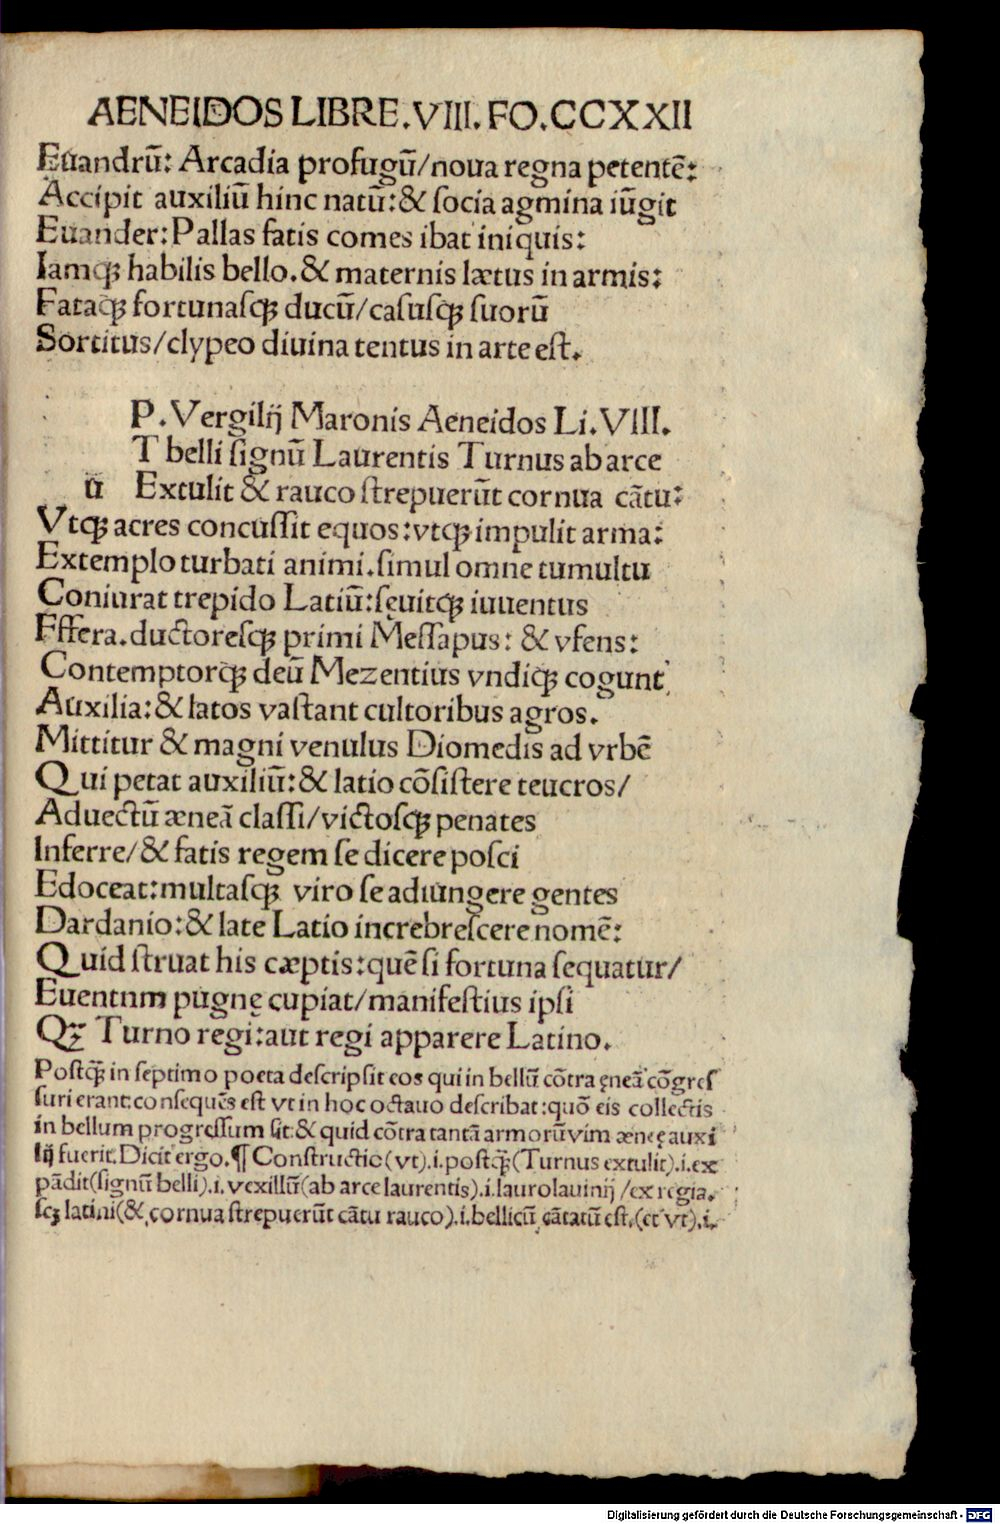 AENEIDOS LIBRE.VIII. FO.CCXXII
Euandrū: Arcadia profugū/noua regna petentē:
Accipit auxiliū hinc natū:& ſocia agmina iūgit
Euander: Pallas fatis comes ibat iniquis:
Iamqꝫ habilis bello.& maternis lætus in armis:
Fataqꝫ fortunaſqꝫ ducū/caſuſqꝫ ſuorū
Sortitus/clypeo diuina tentus in arte eſt.
P. Vergilij Maronis Aeneidos Li.VIII.
T belli ſignū Laurentis Turnus ab arce
ū Extulit & rauco ſtrepuerūt cornua cātu:
Vtqꝫ acres concuſſit equos:vtqꝫ impulit arma:
Extemplo turbati animi.ſimul omne tumultu
Coniurat trepido Latiū:ſęuitqꝫ iuuentus
Effera.ductoreſqꝫ primi Meſſapus: & vfens:
Contemptorqꝫ deū Mezentius vndiqꝫ cogunt
Auxilia:& latos vaſtant cultoribus agros.
Mittitur & magni venulus Diomedis ad vrbē
Qui petat auxiliū:& latio cōſiſtere teucros/
Aduectū æneā claſſi/victoſqꝫ penates
Inferre/& fatis regem ſe dicere poſci
Edoceat:multaſqꝫ viro ſe adiungere gentes
Dardanio:& late Latio increbreſcere nomē:
Quid ſtruat his cæptis:quē ſi fortuna ſequatur/
Euentum pugnę cupiat/manifeſtius ipſi
Qꝫ Turno regi:aut regi apparere Latino.
Poſtqꝫ in ſeptimo poeta deſcripſit eos qui in bellū cōtra ęneā cōgreſ
ſuri erant:conſequēs eſt vt in hoc octauo deſcribat:quō eis collectis
in bellum progreſſum ſit:& quid cōtra tantā armorū vim æneę auxi
lij fuerit.Dicit ergo.¶ Conſtructio(vt).i.poſtqꝫ(Turnus extulit).i.ex
pādit(ſignū belli).i.vexillū(ab arce laurentis).i.laurolauinij/ex regia.
ſcꝫ latini(& cornua ſtrepuerūt cātu rauco).i.bellicū cātatū eſt.(et vt).i.
Digitalisierung gefördert durch die Deutsche Forschungsgemeinschaft - DFG